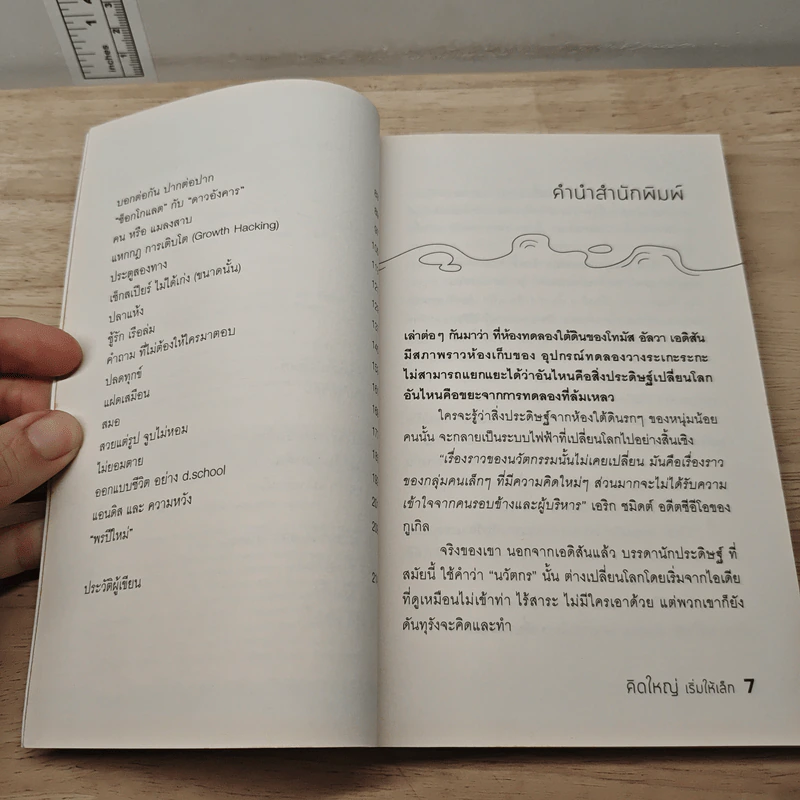 inches
1
บอกต่อกัน ปากต่อปาก
"ช็อกโกแลต" กับ "ดาวอังคาร"
คน หรือ แมลงสาบ
แหกกฎ การเติบโต (Growth Hacking)
ประตูสองทาง
เช็กสเปียร์ ไม่ได้เก่ง (ขนาดนั้น)
ปลาแห้ง
ชู้รัก เรือล่ม
คำถาม ที่ไม่ต้องให้ใครมาตอบ
ปลดทุกข์
แฝดเสมือน
สมอ
สวยแต่รูป จูบไม่หอม
ไม่ยอมตาย
ออกแบบชีวิต อย่าง d.school
แอนดิส และ ความหวัง
"พรปีใหม่"
ประวัติผู้เขียน
คำนำสำนักพิมพ์
เล่าต่อๆ กันมาว่า ที่ห้องทดลองใต้ดินของโทมัส อัลวา เอดิสัน
มีสภาพราวห้องเก็บของ อุปกรณ์ทดลองวางระเกะระกะ
ไม่สามารถแยกแยะได้ว่าอันไหนคือสิ่งประดิษฐ์เปลี่ยนโลก
อันไหนคือขยะจากการทดลองที่ล้มเหลว
ใครจะรู้ว่าสิ่งประดิษฐ์จากห้องใต้ดินรกๆ ของหนุ่มน้อย
คนนั้น จะกลายเป็นระบบไฟฟ้าที่เปลี่ยนโลกไปอย่างสิ้นเชิง
"เรื่องราวของนวัตกรรมนั้นไม่เคยเปลี่ยน มันคือเรื่องราว
ของกลุ่มคนเล็กๆ ที่มีความคิดใหม่ๆ ส่วนมากจะไม่ได้รับความ
เข้าใจจากคนรอบข้างและผู้บริหาร" เอริก ชมิดต์ อดีตซีอีโอของ
กูเกิล
จริงของเขา นอกจากเอดิสันแล้ว บรรดานักประดิษฐ์ ที่
สมัยนี้ ใช้คำว่า "นวัตกร" นั้น ต่างเปลี่ยนโลกโดยเริ่มจากไอเดีย
ที่ดูเหมือนไม่เข้าท่า ไร้สาระ ไม่มีใครเอาด้วย แต่พวกเขาก็ยัง
ดันทุรังจะคิดและทำ
คิดใหญ่ เริ่มให้เล็ก 7